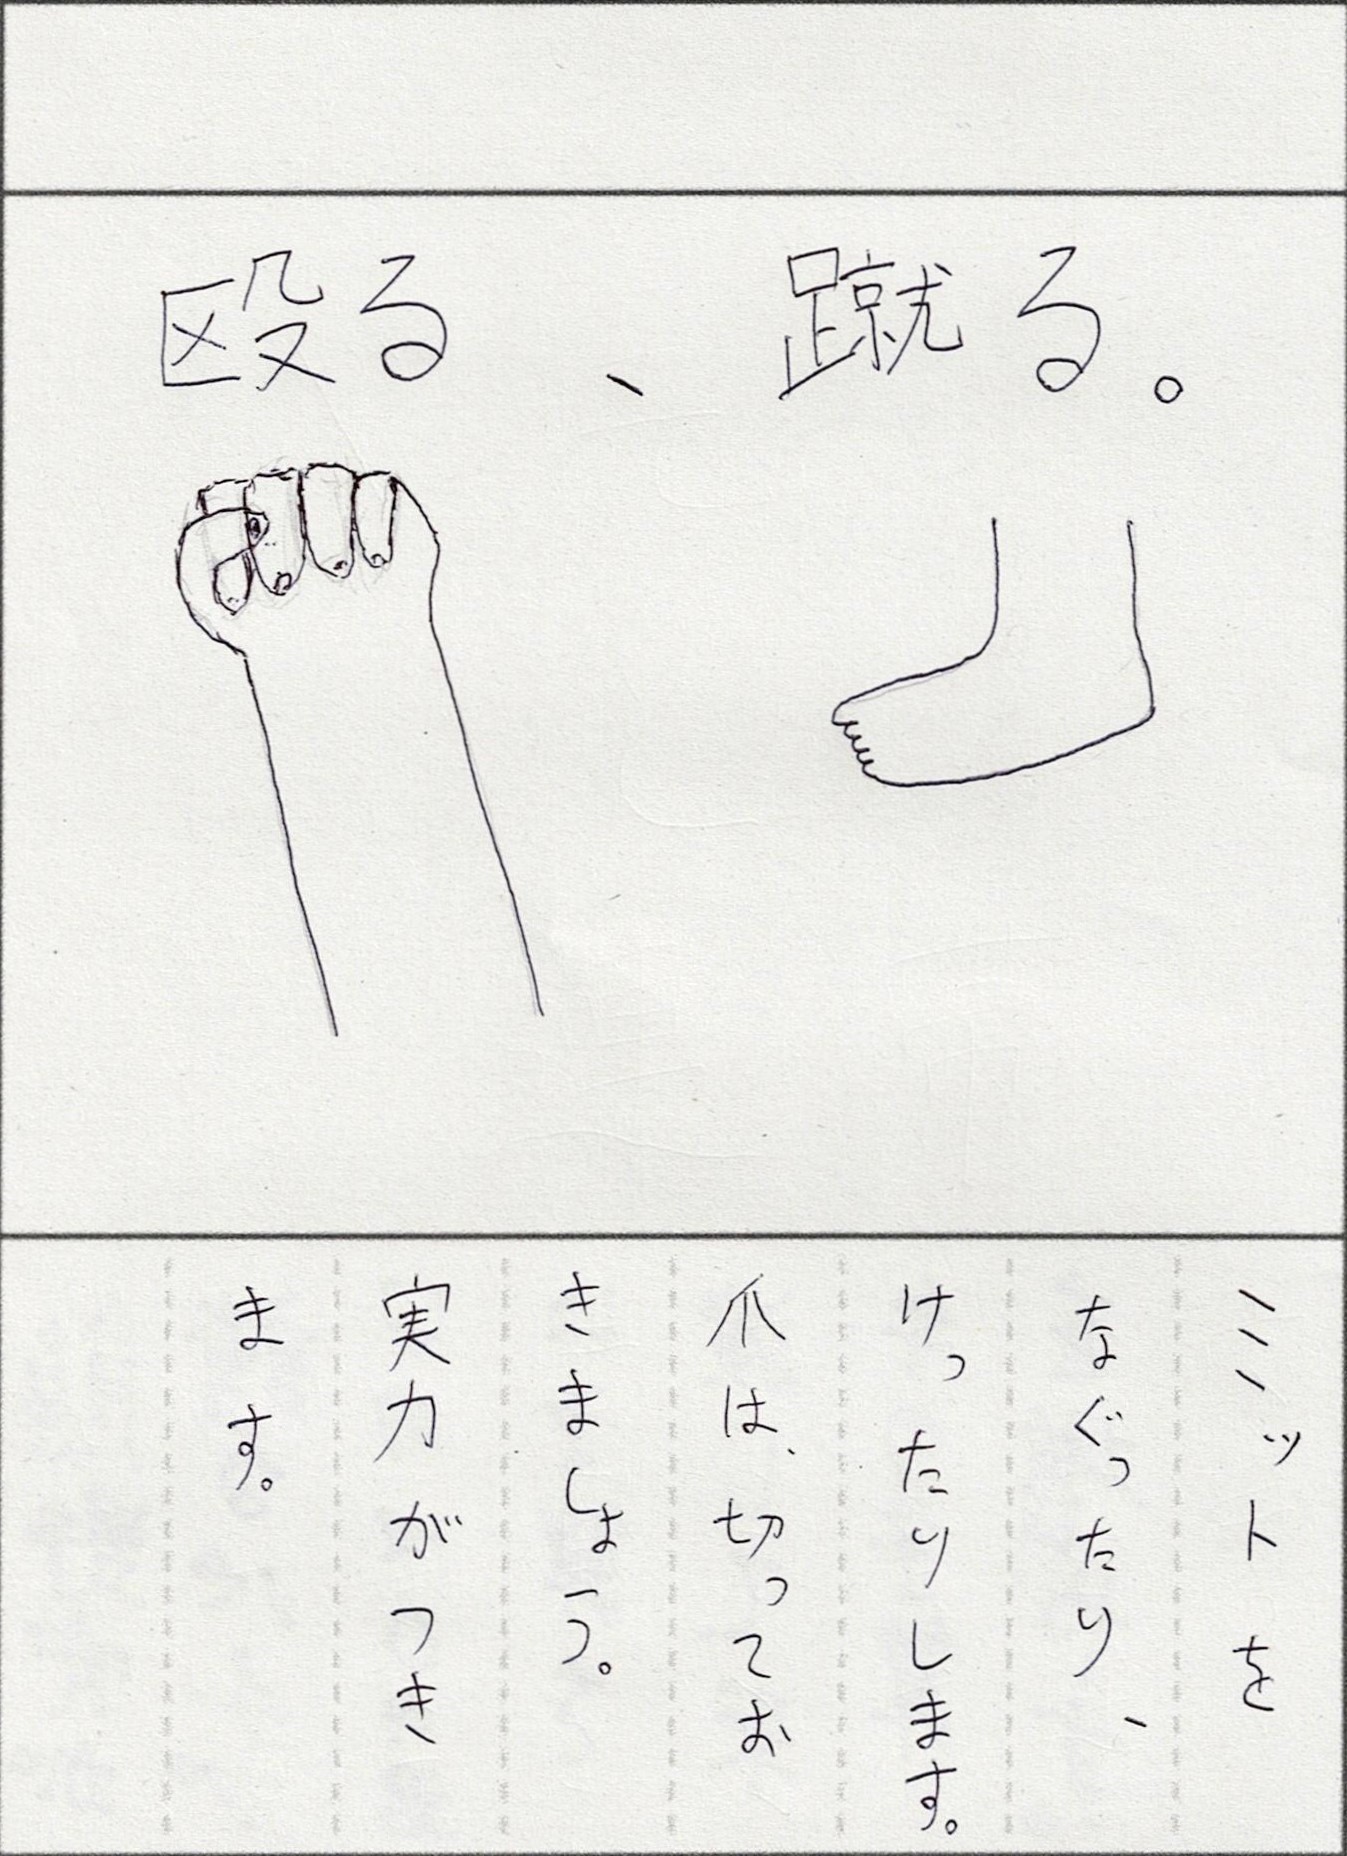 殴る、蹴る。
ミットを
なぐったり、
けったりします。
爪は、切ってお
きましょう。
実力がつき
ます。